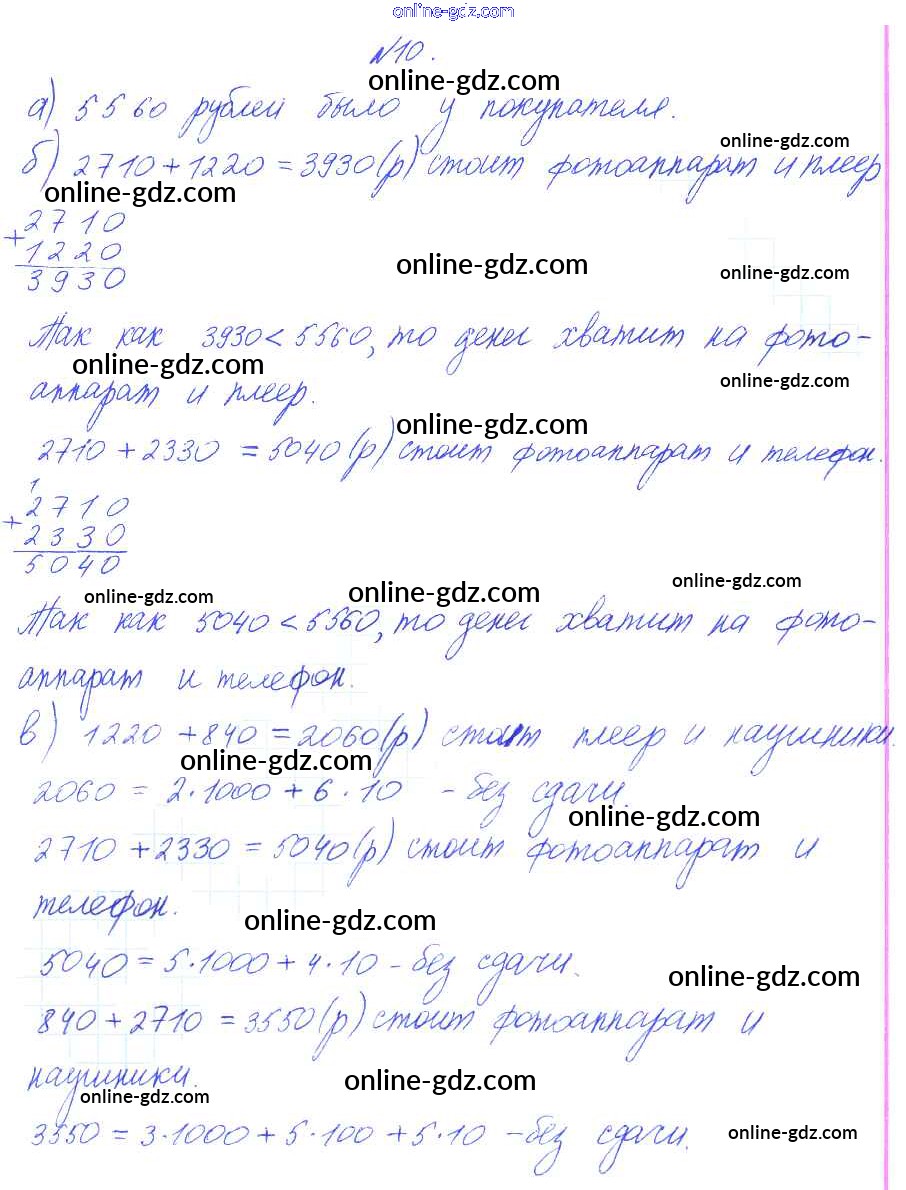 online-gdz.com
№10.
online-gdz.com
а) 5560 рублей было у покупателя.
online-gdz.com
б) 2710+1220=3930(р) стоит фотоаппарат и плеер
online-gdz.com
2710
+
1220
3930
online-gdz.com
online-gdz.com
Так как 3930<5560, то денег хватит на фото-
online-gdz.com
online-gdz.com
аппарат и плеер.
online-gdz.com
2710+2330=5040(р) стоит фотоаппарат и телефон.
1
2710
+
2330
5040
online-gdz.com
online-gdz.com
online-gdz.com
Так как 5040<5560, то денег хватит на фото-
аппарат и телефон.
в) 1220+840=2060(р) стоит плеер и наушники.
online-gdz.com
2060=2·1000+6·10 - без сдачи.
online-gdz.com
2710+2330=5040(р) стоит фотоаппарат и
телефон.
online-gdz.com
5040=5·1000+4·10 - без сдачи.
online-gdz.com
840+2710=3550(р) стоит фотоаппарат и
наушники.
online-gdz.com
online-gdz.com
3550=3·1000+5·100+5·10 - без сдачи.
online-gdz.com